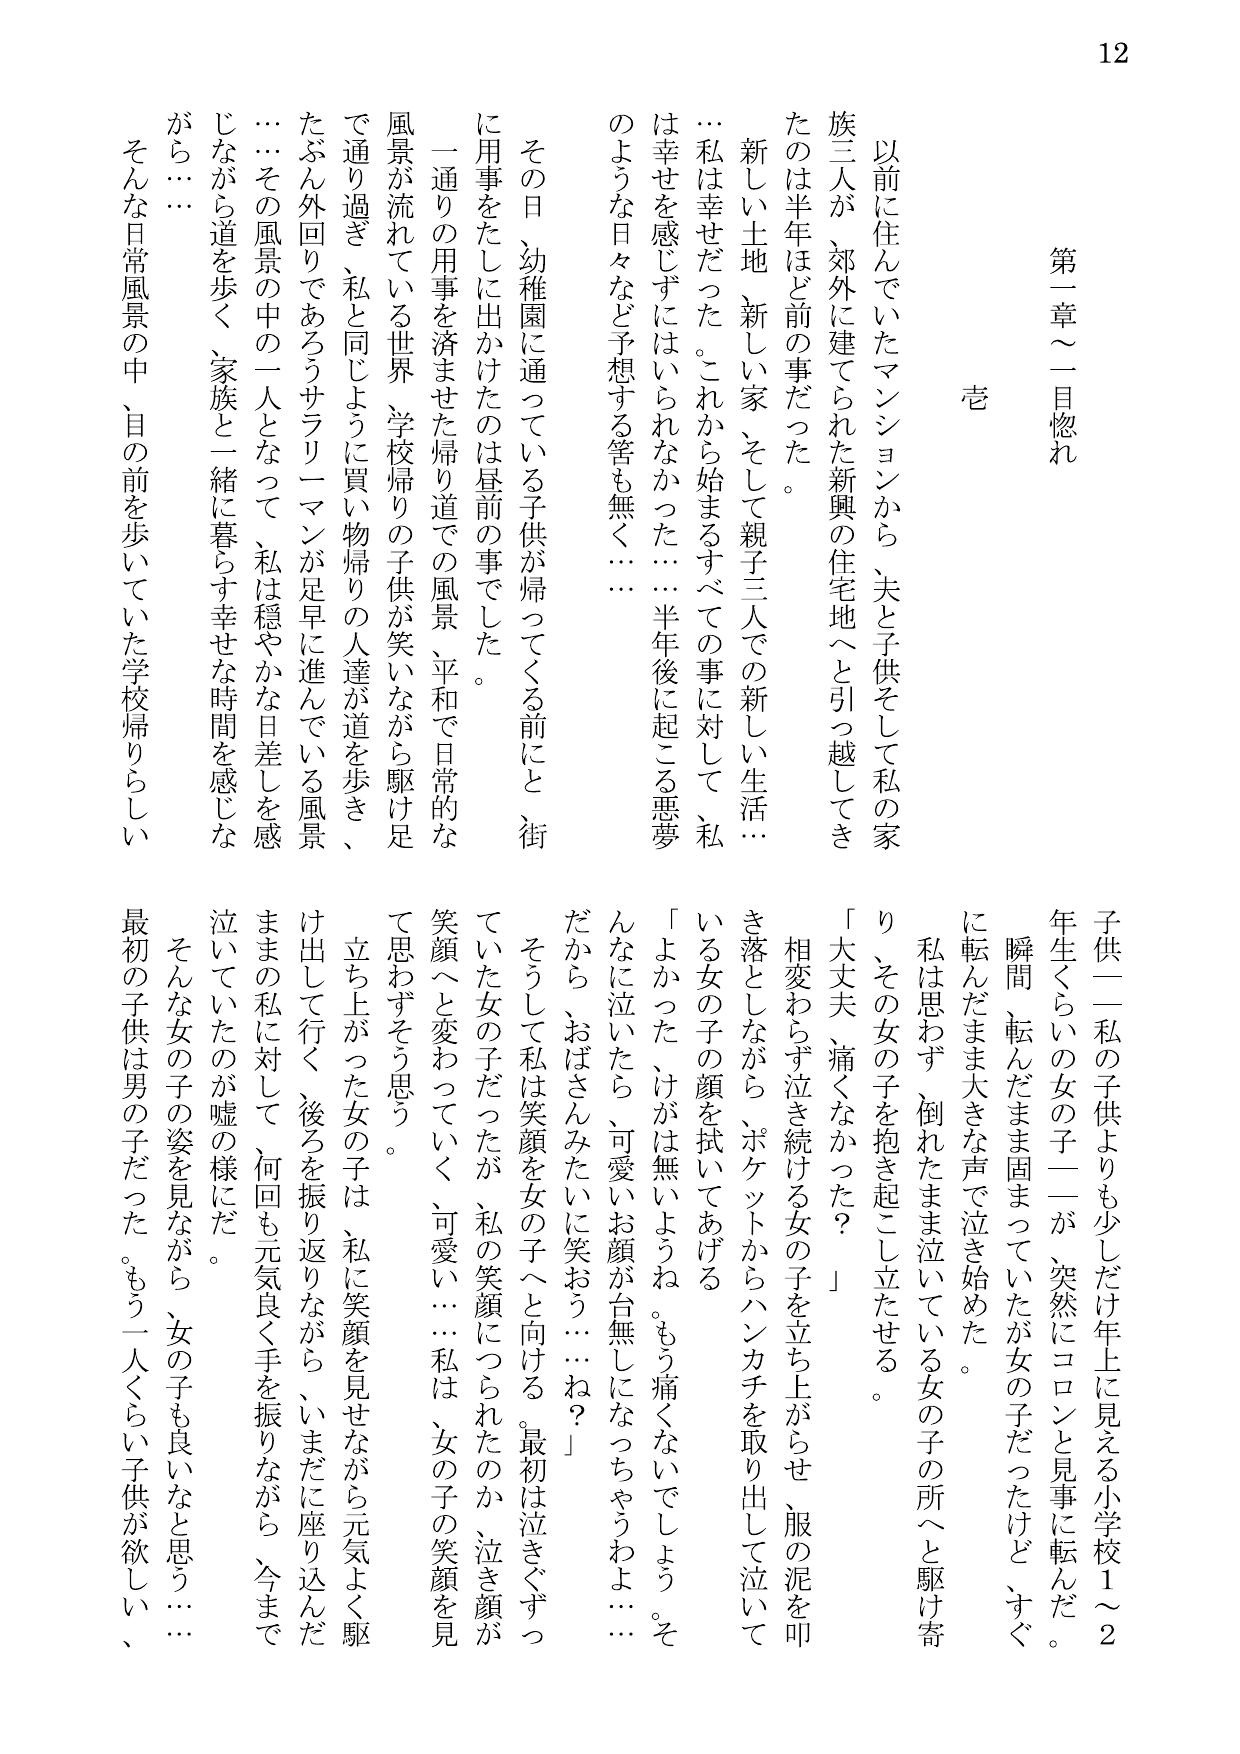 12
第一章～一目惚れ
壱
以前に住んでいたマンションから、夫と子供そして私の家
族三人が、郊外に建てられた新興の住宅地へと引っ越してき
たのは半年ほど前の事だった。
新しい土地、新しい家、そして親子三人での新しい生活…
…私は幸せだった。これから始まるすべての事に対して、私
は幸せを感じずにはいられなかった……半年後に起こる悪夢
のような日々など予想する筈も無く……
その日、幼稚園に通っている子供が帰ってくる前にと、街
に用事をたしに出かけたのは昼前の事でした。
一通りの用事を済ませた帰り道での風景、平和で日常的な
風景が流れている世界、学校帰りの子供が笑いながら駆け足
で通り過ぎ、私と同じように買い物帰りの人達が道を歩き、
たぶん外回りであろうサラリーマンが足早に進んでいる風景
……その風景の中の一人となって、私は穏やかな日差しを感
じながら道を歩く、家族と一緒に暮らす幸せな時間を感じな
がら……
そんな日常風景の中、目の前を歩いていた学校帰りらしい
子供――私の子供よりも少しだけ年上に見える小学校1～2
年生くらいの女の子――が、突然にコロンと見事に転んだ。
瞬間、転んだまま固まっていたが女の子だったけど、すぐ
に転んだまま大きな声で泣き始めた。
私は思わず、倒れたまま泣いている女の子の所へと駆け寄
り、その女の子を抱き起こし立たせる。
「大丈夫、痛くなかった？」
相変わらず泣き続ける女の子を立ち上がらせ、服の泥を叩
き落としながら、ポケットからハンカチを取り出して泣いて
いる女の子の顔を拭いてあげる
「よかった、けがは無いようね。もう痛くないでしょう。そ
んなに泣いたら、可愛いお顔が台無しになっちゃうわよ……
だから、おばさんみたいに笑おう……ね？」
そうして私は笑顔を女の子へと向ける。最初は泣きぐずっ
ていた女の子だったが、私の笑顔につられたのか、泣き顔が
笑顔へと変わっていく、可愛い……私は、女の子の笑顔を見
て思わずそう思う。
立ち上がった女の子は、私に笑顔を見せながら元気よく駆
け出して行く、後ろを振り返りながら、いまだに座り込んだ
ままの私に対して、何回も元気良く手を振りながら、今まで
泣いていたのが嘘の様にだ。
そんな女の子の姿を見ながら、女の子も良いなと思う……
最初の子供は男の子だった。もう一人くらい子供が欲しい、